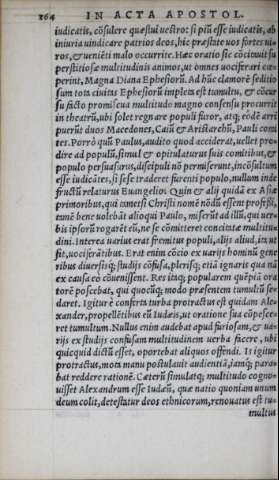 264 IN ACTA APOSTOL.
iudicatis, cõsulere quæstui uestro: si piũ esse iudicatis, ab
iniuria uindicare patrios deos, hic præstate uos fortes ui-
ros, & ueniẽti malo occurrite. Hæc oratio sic cõcitauit su
perstitiosæ multitudinis animos, ut omnes uociferari cœ-
perint, Magna Diana Ephesiorũ. Ad hũc clamorẽ seditio
sum tota ciuitas Ephesiorũ impleta est tumultu, & cõcur
su facto promiscua multitudo magno consensu procurrit
in theatrũ, ubi solet regnare populi furor, atq; eodẽ arri
puerũt duos Macedones, Caiũ & Aristarchũ, Pauli comi
tes. Porrò quũ Paulus, audito quod acciderat, uellet pro-
dire ad populũ, simul & opitulaturus suis comitibus, &
populo persuasurus, discipuli nõ permiserunt, incõsultum
esse iudicãtes, si sese traderet furenti populo, nullam inde
fructũ relaturus Euangelio. Quin & alij quidã ex Asiæ
primoribus, qui tametsi Christi nomẽ nõdũ essent professi,
tamẽ bene uolebãt alioqui Paulo, miserũt ad illũ, qui uer-
bis ipsorũ rogarẽt eũ, ne se cõmitteret concitatæ multitu-
dini. Interea uarius erat fremitus populi, alijs aliud, ita ut
fit, uociferãtibus. Erat enim cõcio ex uarijs hominũ gene
ribus diuersisq; studijs cõfusa, plerisq; etiã ignaris qua nã
ex causa eò cõuenissent. Res itaq; popularem quẽpiã ora
torẽ poscebat, qui quocũq; modo præsentem tumultũ se-
daret. Igitur è conferta turba protractus est quidam Ale-
xander, propellẽtibus eũ Iudæis, ut oratione sua cõpesce-
ret tumultum. Nullus enim audebat apud furiosam, & ua-
rijs ex studijs confusam multitudinem uerba facere, ubi
quicquid dictũ esset, oportebat aliquos offendi. Is igitur
protractus, mota manu postulauit audientiã, iamq; para-
bat reddere rationẽ. Cæterũ simulatq; multitudo cogno-
uisset Alexandrum esse Iudæũ, quæ natio quoniam unum
deum colit, detestatur deos ethnicorum, renouatus est tu-
multus